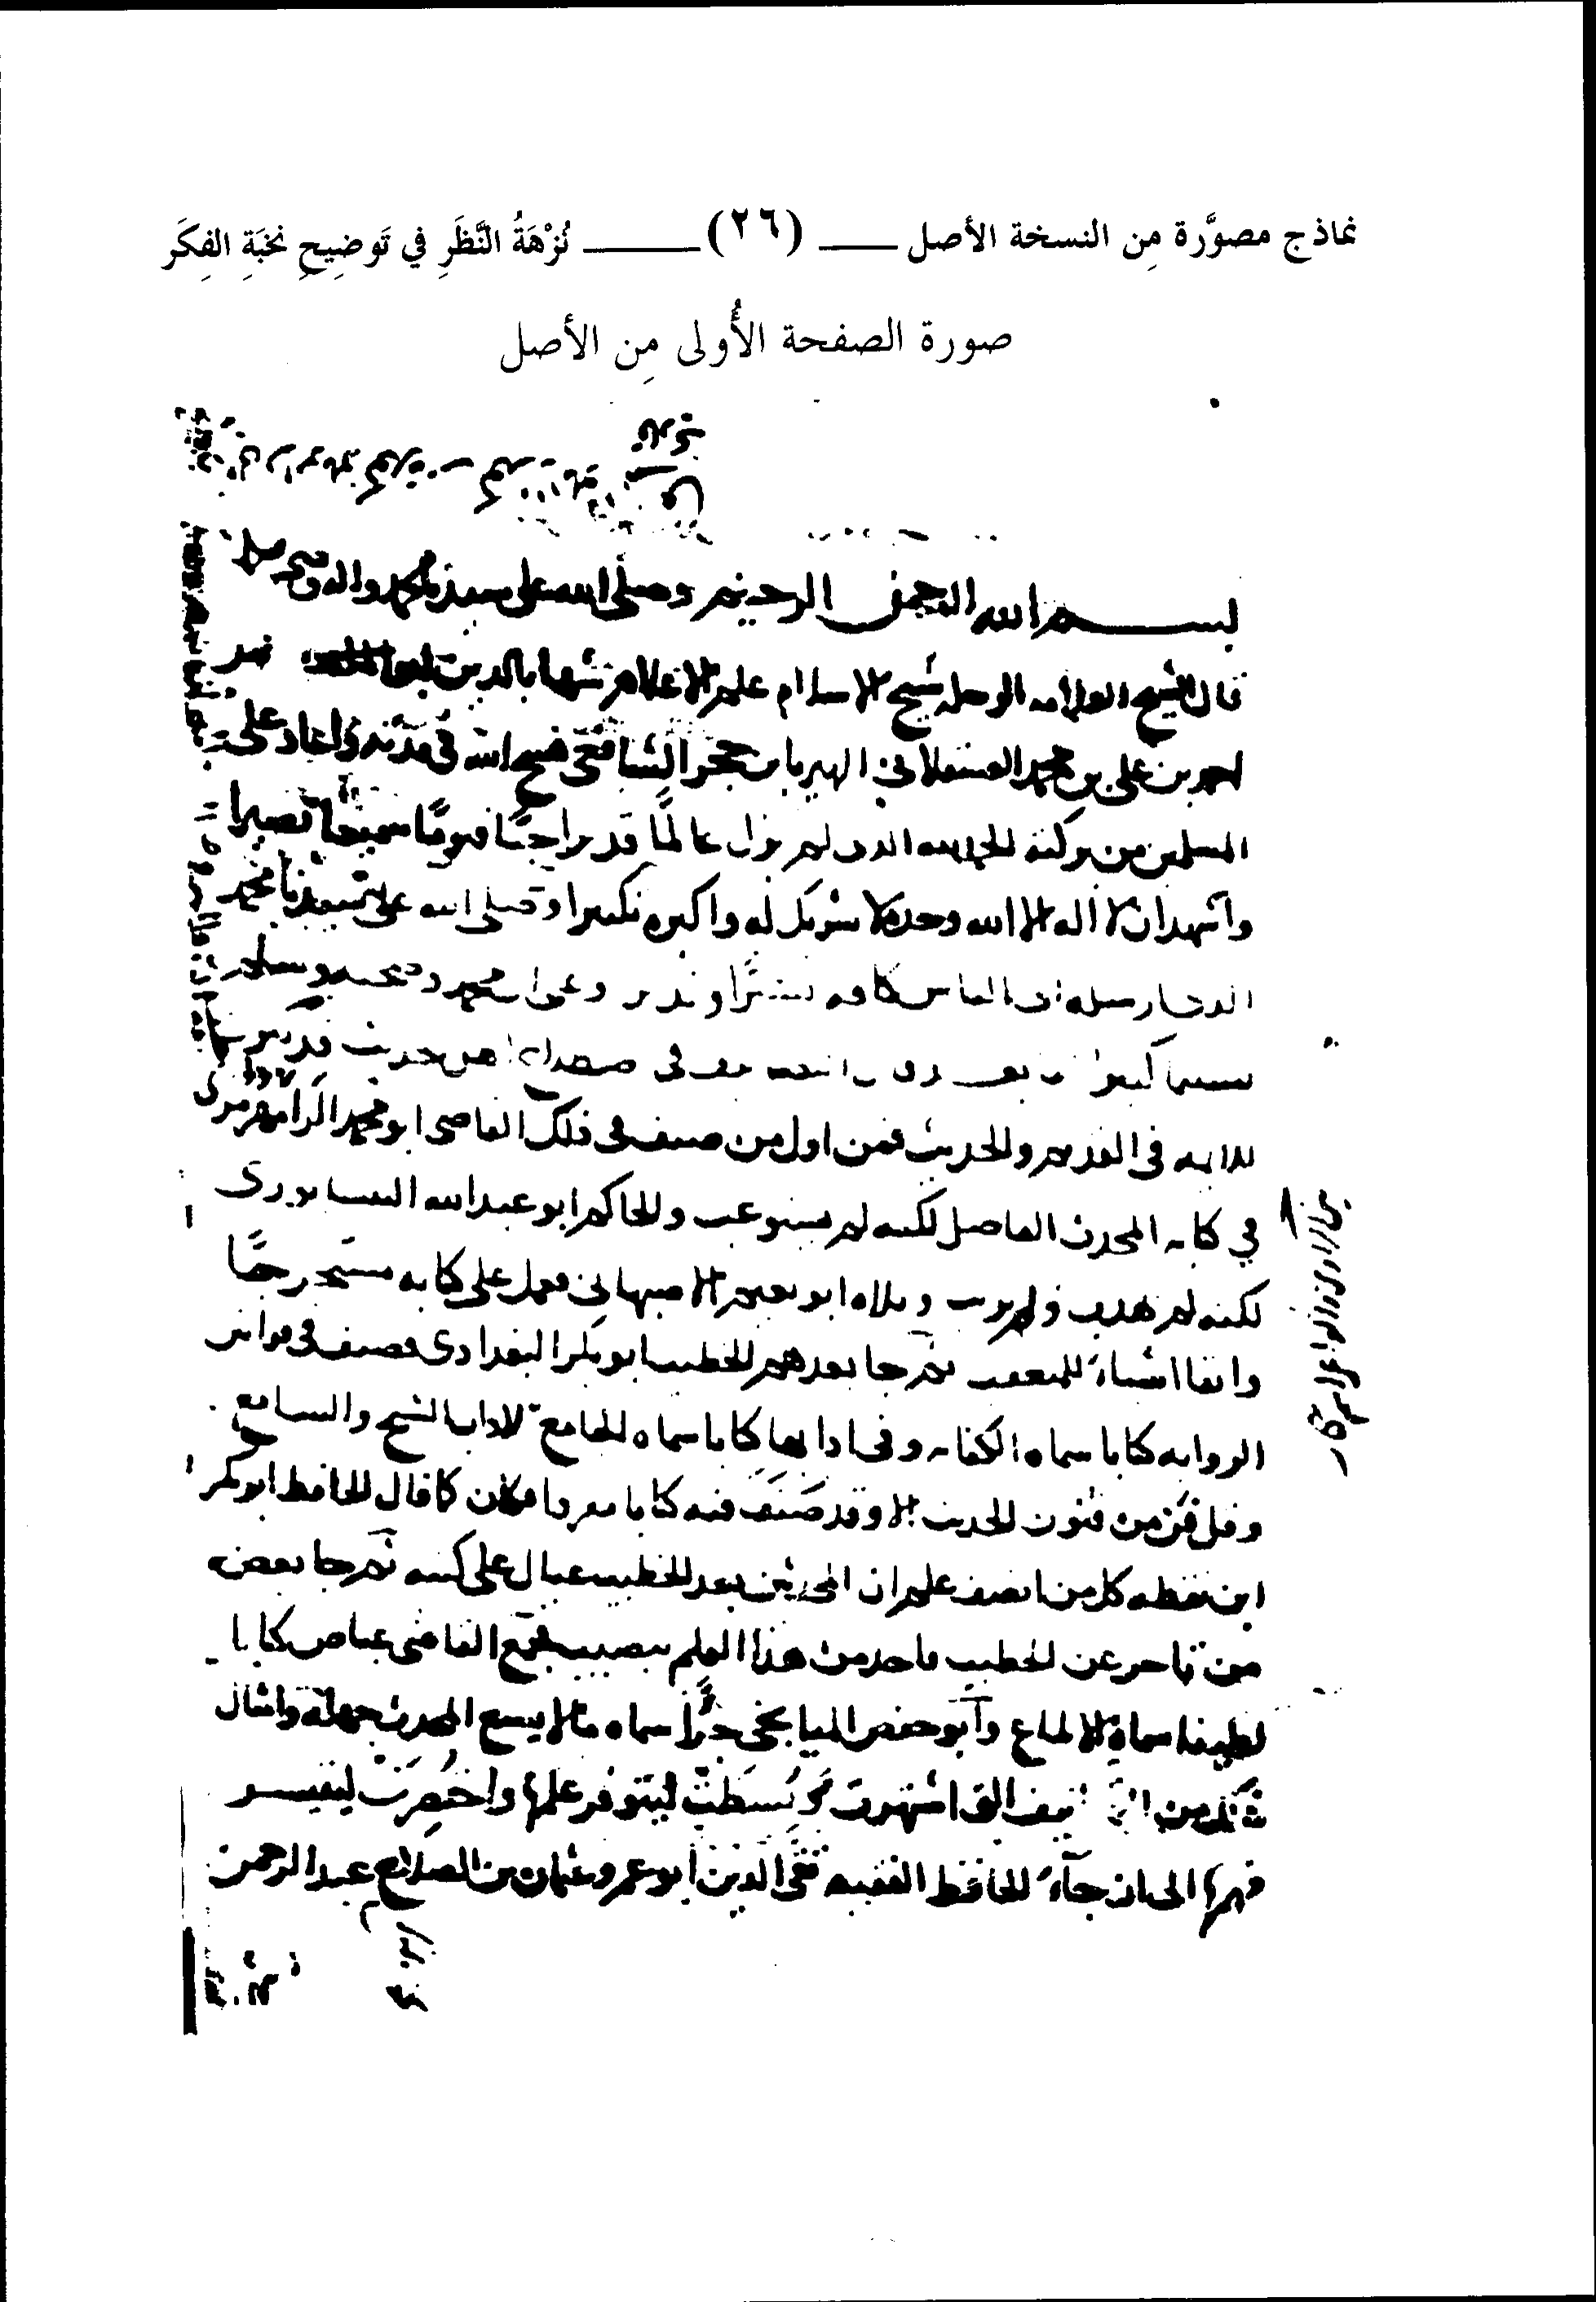 نماذج مصوَّرة مِن النسخة الأصل (٢٦) نُزْهَةُ النَّظَرِ في تَوضِيحِ نخبَةِ الفِكَر
صورة الصفحة الأُولى مِن الأصل
بسم الله الرحمن الرحيم وصلى الله على سيدنا محمد واله وصحبه وسلم
قال الشيخ العلامه الرحله شيخ الاسلام علم الاعلام شهاب الدين
احمد بن على بن محمد العسقلاني الشهير بابن حجر الشافعى فسح الله في مدته واعاد على
المسلمين من بركته الحمد لله الذى لم يزل عالمًا قديرا حيًا قيومًا سميعًا بصيرا
واشهد ان لا اله الا الله وحده لا شريك له واكبره تكبيرا وصلى الله على سيدنا محمد
الذى ارسله الى الناس كافه بشيرًا ونذيرا وعلى ال محمد وصحبه وسلم
تسليما كثيرا اما بعد فان التصانيف فى اصطلاح اهل حديث قد كثرت
للايمه فى القديم والحديث فمن اول من صنف فى ذلك القاضى ابو محمد الرامهرمزى
في كتابه المحدث الفاصل لكنه لم يستوعب والحاكم ابو عبد الله النيسابورى
لكنه لم يهذب ولم يرتب وتلاه ابو نعيم الاصبهاني فعمل على كتابه مستخرجًا
وابقا اشياء للمتعقب ثم جا بعدهم الخطيب ابو بكر البغدادى فصنف فى قوانين
الروايه كتابا سماه الكفايه وفى ادابها كتابا سماه الجامع لاداب الشيخ والسامع
وقل فن من فنون الحديث الا وقد صَنَفَ فيه كتابا مفردا فكان كما قال الحافظ ابو بكر
ابن نقطه كل من انصف علم ان المحدثين بعد الخطيب عيال على كتبه ثم جا بعض
من تاخر عن الخطيب فاخذ من هذا العلم بنصيب فجمع القاضى عياض كتابا
لطيفا سماه الالماع وابو حفص الميانجى جزًا سماه مالا يسع المحدث جهله وامثال
ذلك من التصانيف التى اشتهرت وبُسطت ليتوفر علمها واختُصِرَتْ ليتيسر
فهمها الى ان جآءَ الحافظ الفقيه تقى الدين ابو عمرو عثمان بن الصلاح عبد الرحمن